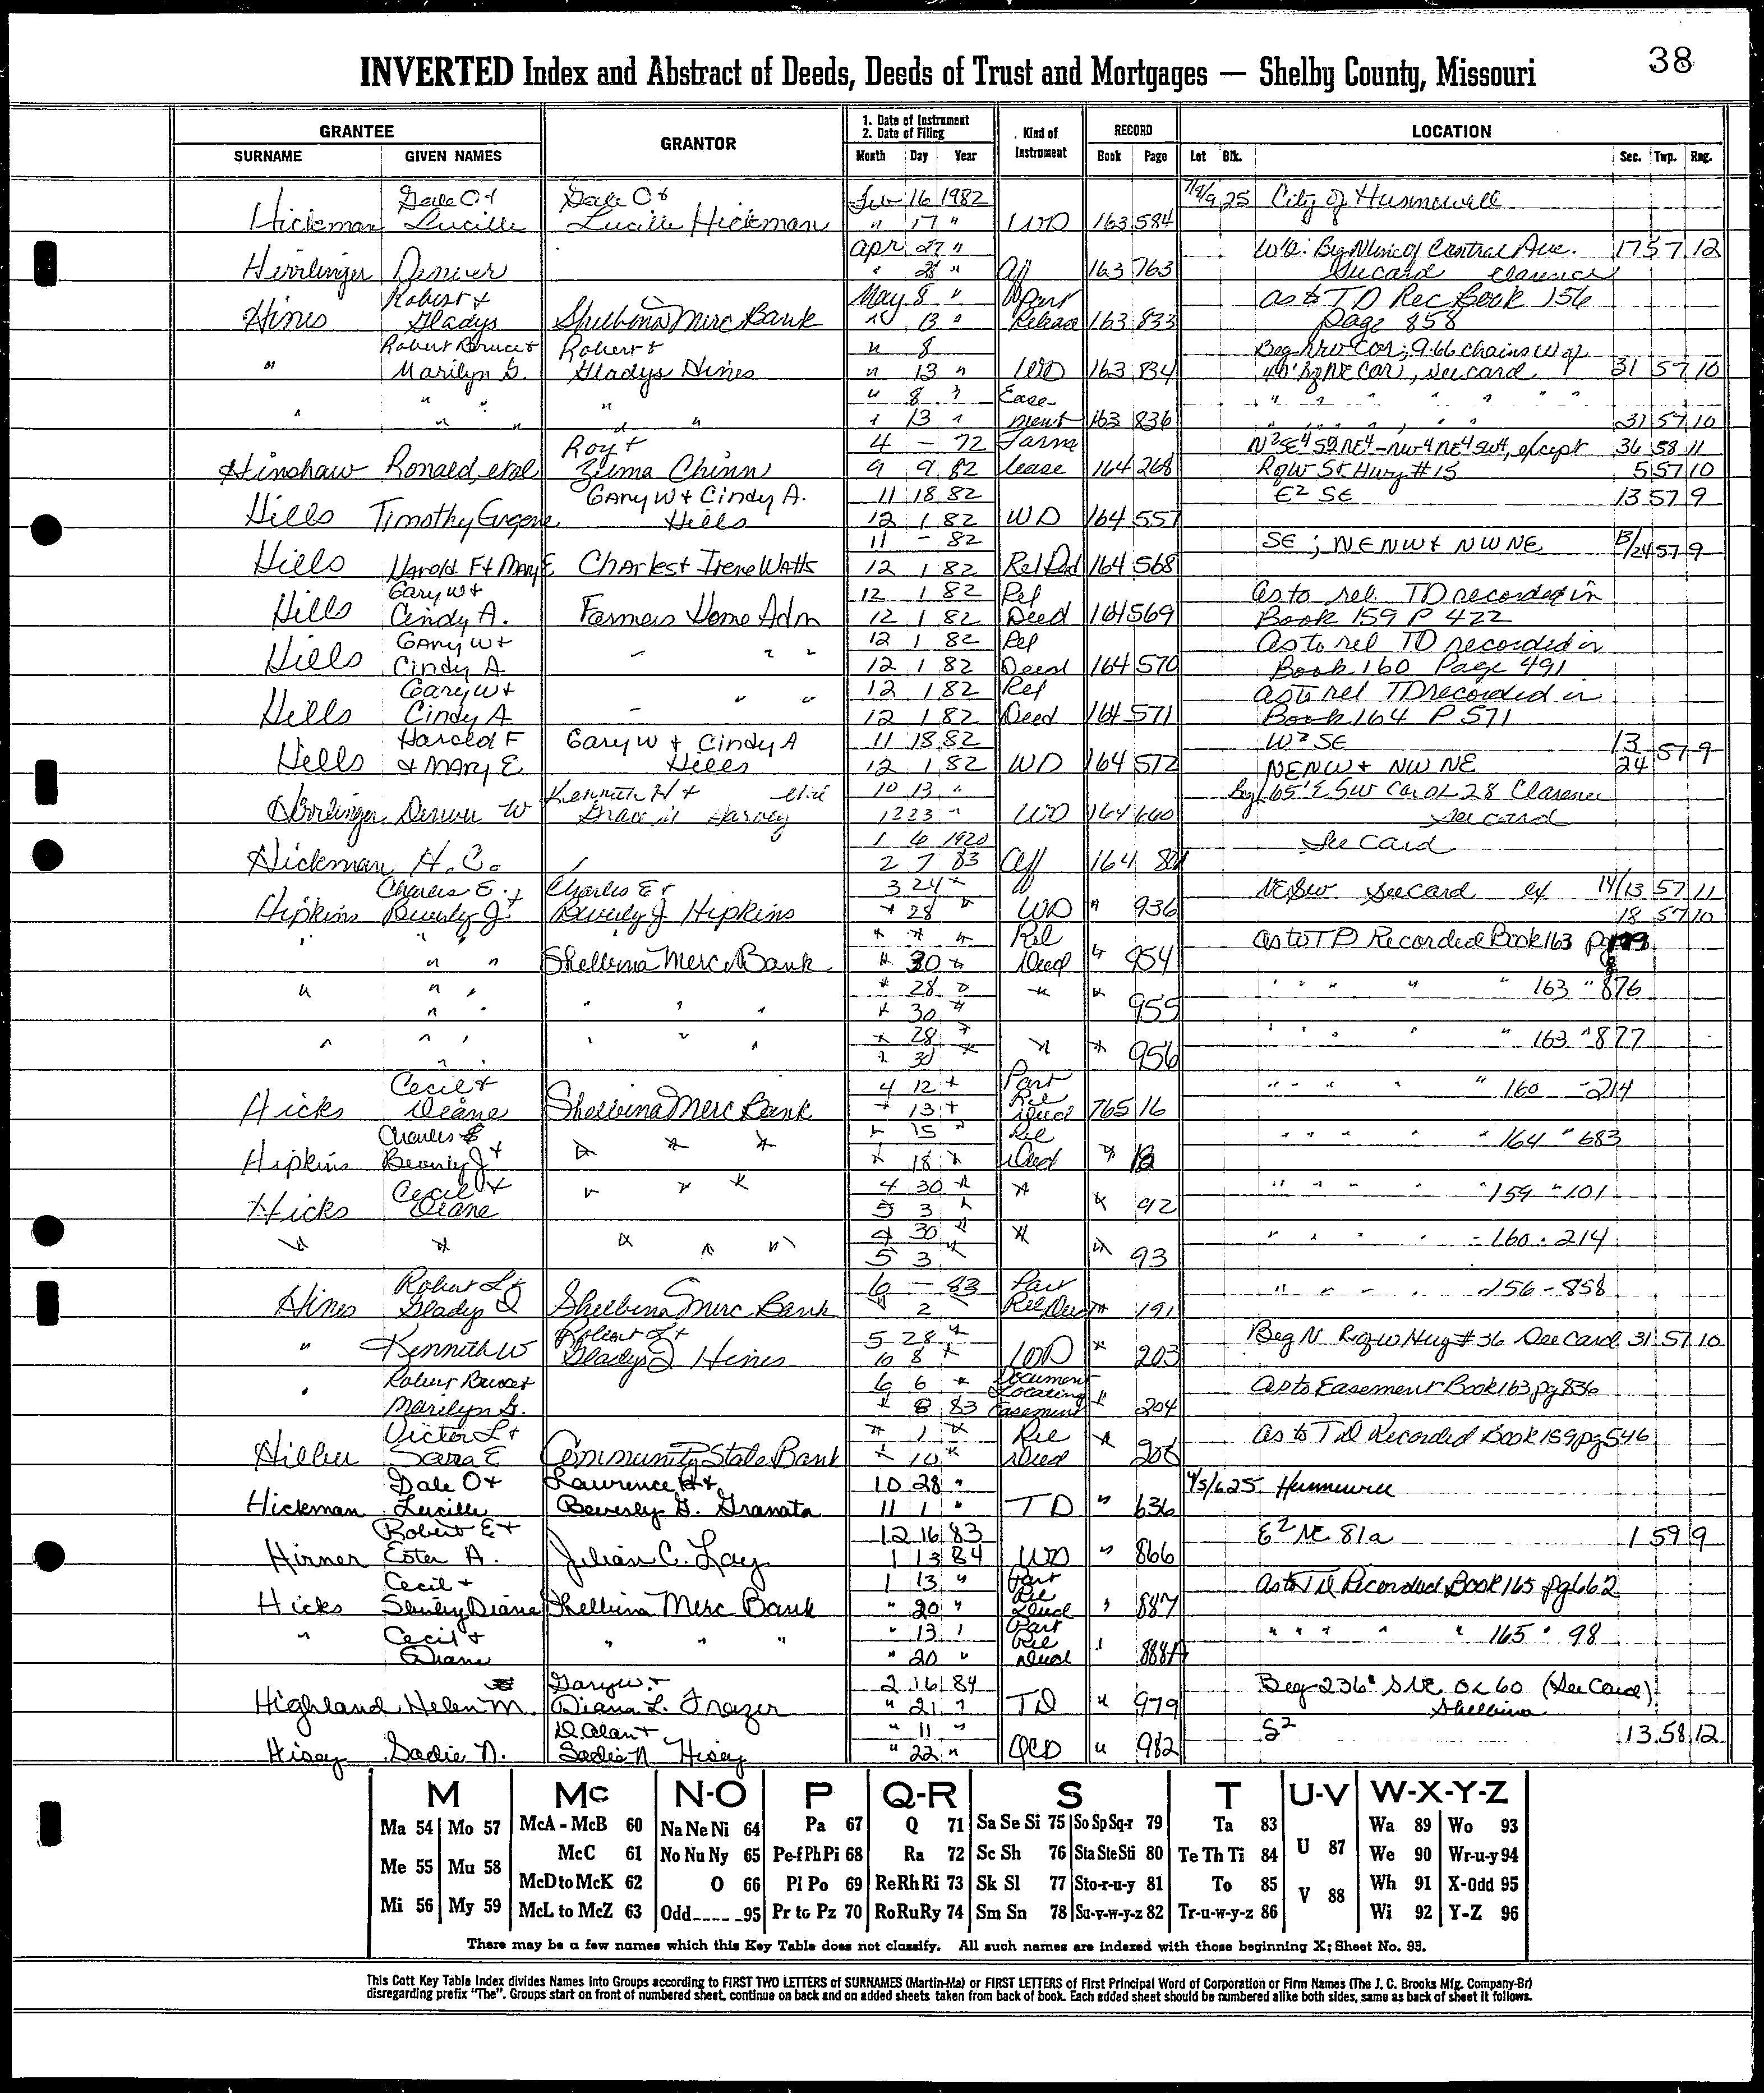 38
INVERTED Index and Abstract of Deeds, Deeds of Trust and Mortgages — Shelby County, Missouri
GRANTEE GRANTOR 1. Date of Instrument 2. Date of Filing Kind of Instrument RECORD LOCATION
SURNAME GIVEN NAMES Month Day Year Book Page Lot Blk. Sec. Twp. Rng.
Dale O + Dale O + Feb 16 1982 City of Hunnewell
Hickman Lucille Lucille Hickman " 17 " WD 163 584
Apr 27 " Beg N line of Central Ave. 17 57 12
Herrlinger Denver " 28 " Aff 163 763 See card Clarence
Robert + May 8 " Part as to TD Rec Book 156
Hines Gladys Shelbina Merc Bank " 13 " Release 163 833 page 858
Robert Bruce + Robert + " 8 Beg NW Cor; 9.66 chains W of
" Marilyn G. Gladys Hines " 13 " WD 163 834 NE Cor, See card 31 57 10
" " " " 8 " Ease-
" " " " " 13 " ment 163 836 31 57 10
Roy + 4 - 72 Farm N2SE4 S2NE4-NW4NE4SW4, except 36 58 11
Hinshaw Ronald, etal Zelma Chinn 9 9 82 lease 164 268 RofW St Hwy #15 5 57 10
Gary W + Cindy A. 11 18 82 E2 SE 13 57 9
Hills Timothy Eugene Hills 12 1 82 WD 164 557
11 - 82 SE ; NENW + NWNE 13/24 57 9
Hills Harold F + Mary E Charles + Irene Watts 12 1 82 Rel Dd 164 568
Gary W + 12 1 82 Rel as to rel. TD recorded in
Hills Cindy A. Farmers Home Adm 12 1 82 Deed 164 569 Book 159 P 422
Gary W + 12 1 82 Rel as to rel TD recorded in
Hills Cindy A - " " 12 1 82 Deed 164 570 Book 160 Page 491
Gary W + 12 1 82 Rel as to rel TD recorded in
Hills Cindy A - " " 12 1 82 Deed 164 571 Book 164 P 571
Harold F Gary W + Cindy A 11 18 82 W2 SE 13
Hills + Mary E Hills 12 1 82 WD 164 572 NENW + NW NE 24 57 9
Kenneth H + 10 13 " Beg 65' E SW Cor OL 28 Clarence
Herrlinger W Harvey 12 23 " WD 164 660 See card
1 6 1920 See Card
Hickman H. C. 2 7 83 Aff 164
Charles E. + Charles E + 3 24 " NESW See Card 14/13 57 11
Hipkins Beverly J. Beverly J Hipkins " 28 " WD " 936 18 57 10
" " " " " " Rel as to TD Recorded Book 163 pg
" " Shelbina Merc Bank " 30 " Deed " 954
" " " " 28 " " " " " " " " 163 " 876
" " " " " " 30 " 955
" " " " " " 28 " " " " " " " " 163 " 877
" " " 30 " 956
Cecil + 4 12 " Part " " " " " 160 - 214
Hicks Diane Shelbina Merc Bank " 13 " Rel Deed 165 16
Charles E " 15 " Rel " " " " " 164 " 683
Hipkins Beverly J + " " " " 18 " Deed " 18
Cecil + " " " 4 30 " " " " " " " 159 " 101
Hicks Diane 5 3 " " 92
" " " " " 4 30 " " " " " " " 160 . 214
5 3 " " 93
Robert L + 6 - 83 Part " " " " 156 - 858
Hines Gladys J Shelbina Merc Bank " 2 " Rel Deed " 191
Robert L + 5 28 " Beg N RofW Hwy #36 See Card 31 57 10
" Kenneth W Gladys J Hines 6 8 " WD " 203
Robert Bruce + 6 6 " Document as to Easement Book 163 pg 836
" Marilyn G. " 8 83 Locating Easement " 204
Victor L + " 1 " Rel as to TD Recorded Book 159 pg 546
Sara E Community State Bank " 10 " Deed " 208
Dale O + Lawrence H + 10 28 " Hunnewell
Hickman Lucille Beverly G. Granata 11 1 " TD " 636
Robert E + 12 16 83 E2 NE 81a 1 59 9
Hirner Ester A. Julian C. Lay 1 13 84 WD " 866
Cecil + 1 13 " Part as to TD Recorded Book 165 pg 662
Hicks Shirley Diane Shelbina Merc Bank " 20 " Rel Deed " 887
" Cecil + " " " " 13 " Part " " " " " 165 " 98
Diane " 20 " Rel Deed " 888A
Gary W. + 2 16 84 Beg 236' S NE OL 60 (See Card)
Highland Helen M. Diana L. Frazer " 21 " TD " 979 Shelbina
D. Alan + " 11 " S2 13 58 12
Hisey Sadie N. Sadie N Hisey " 22 " QCD " 982
M Mc N-O P Q-R S T U-V W-X-Y-Z
Ma 54 Mo 57 McA - McB 60 Na Ne Ni 64 Pa 67 Q 71 Sa Se Si 75 So Sp Sq-r 79 Ta 83 U 87 Wa 89 Wo 93
Me 55 Mu 58 McC 61 No Nu Ny 65 Pe-f Ph Pi 68 Ra 72 Sc Sh 76 Sta Ste Sti 80 Te Th Ti 84 We 90 Wr-u-y 94
McD to McK 62 O 66 Pl Po 69 Re Rh Ri 73 Sk Sl 77 Sto-r-u-y 81 To 85 V 88 Wh 91 X-Odd 95
Mi 56 My 59 McL to McZ 63 Odd---- -95 Pr to Pz 70 Ro Ru Ry 74 Sm Sn 78 Su-v-w-y-z 82 Tr-u-w-y-z 86 Wi 92 Y-Z 96
There may be a few names which this Key Table does not classify. All such names are indexed with those beginning X; Sheet No. 95.
This Cott Key Table Index divides Names Into Groups according to FIRST TWO LETTERS of SURNAMES (Martin-Ma) or FIRST LETTERS of First Principal Word of Corporation or Firm Names (The J. C. Brooks Mfg. Company-Br)
disregarding prefix "The". Groups start on front of numbered sheet, continue on back and on added sheets taken from back of book. Each added sheet should be numbered alike both sides, same as back of sheet it follows.